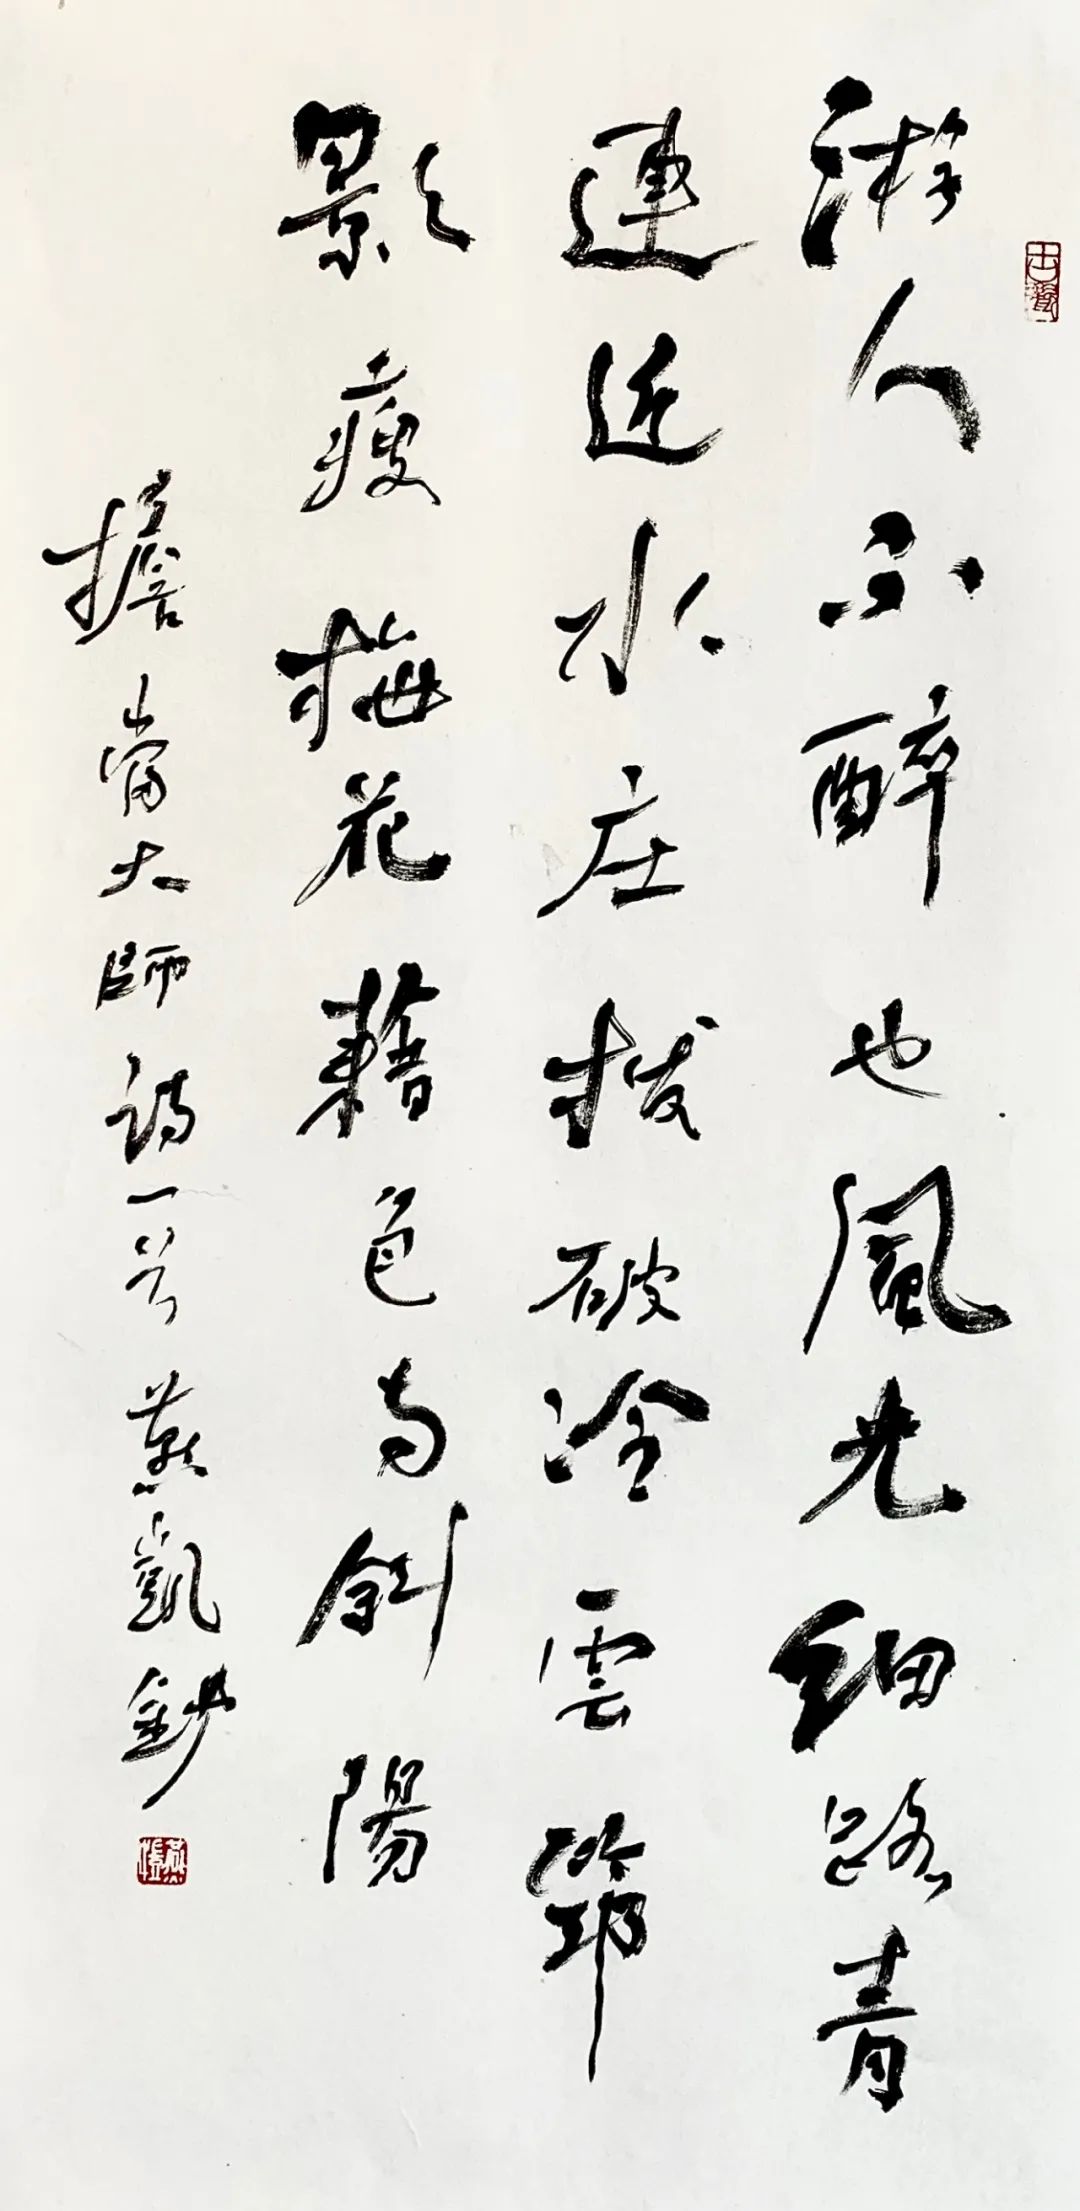 游人不醉也風光細路青
連近水庄拨破冷雲筇
影瘦梅花藉色与斜陽
擔當大師詩一首燕凱鈔